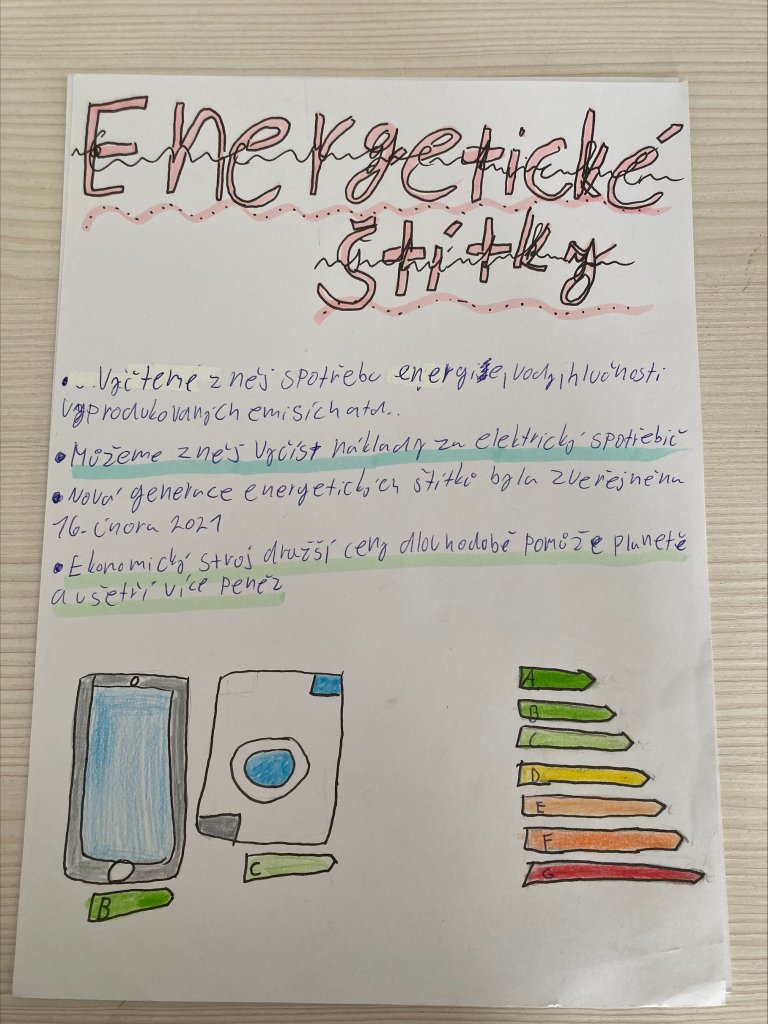 Energetické
štítky
• Vyčteme z něj spotřebu energie, vody, hlučnosti
vyprodukovaných emisích atd..
• Můžeme z něj vyčíst náklady za elektrický spotřebič
• Nová generace energetických štítků byla zveřejněna
16. února 2021
• Ekonomický stroj dražší ceny dlouhodobě pomůže planetě
a ušetří více peněz
A
B
C
D
E
F
G
C
B